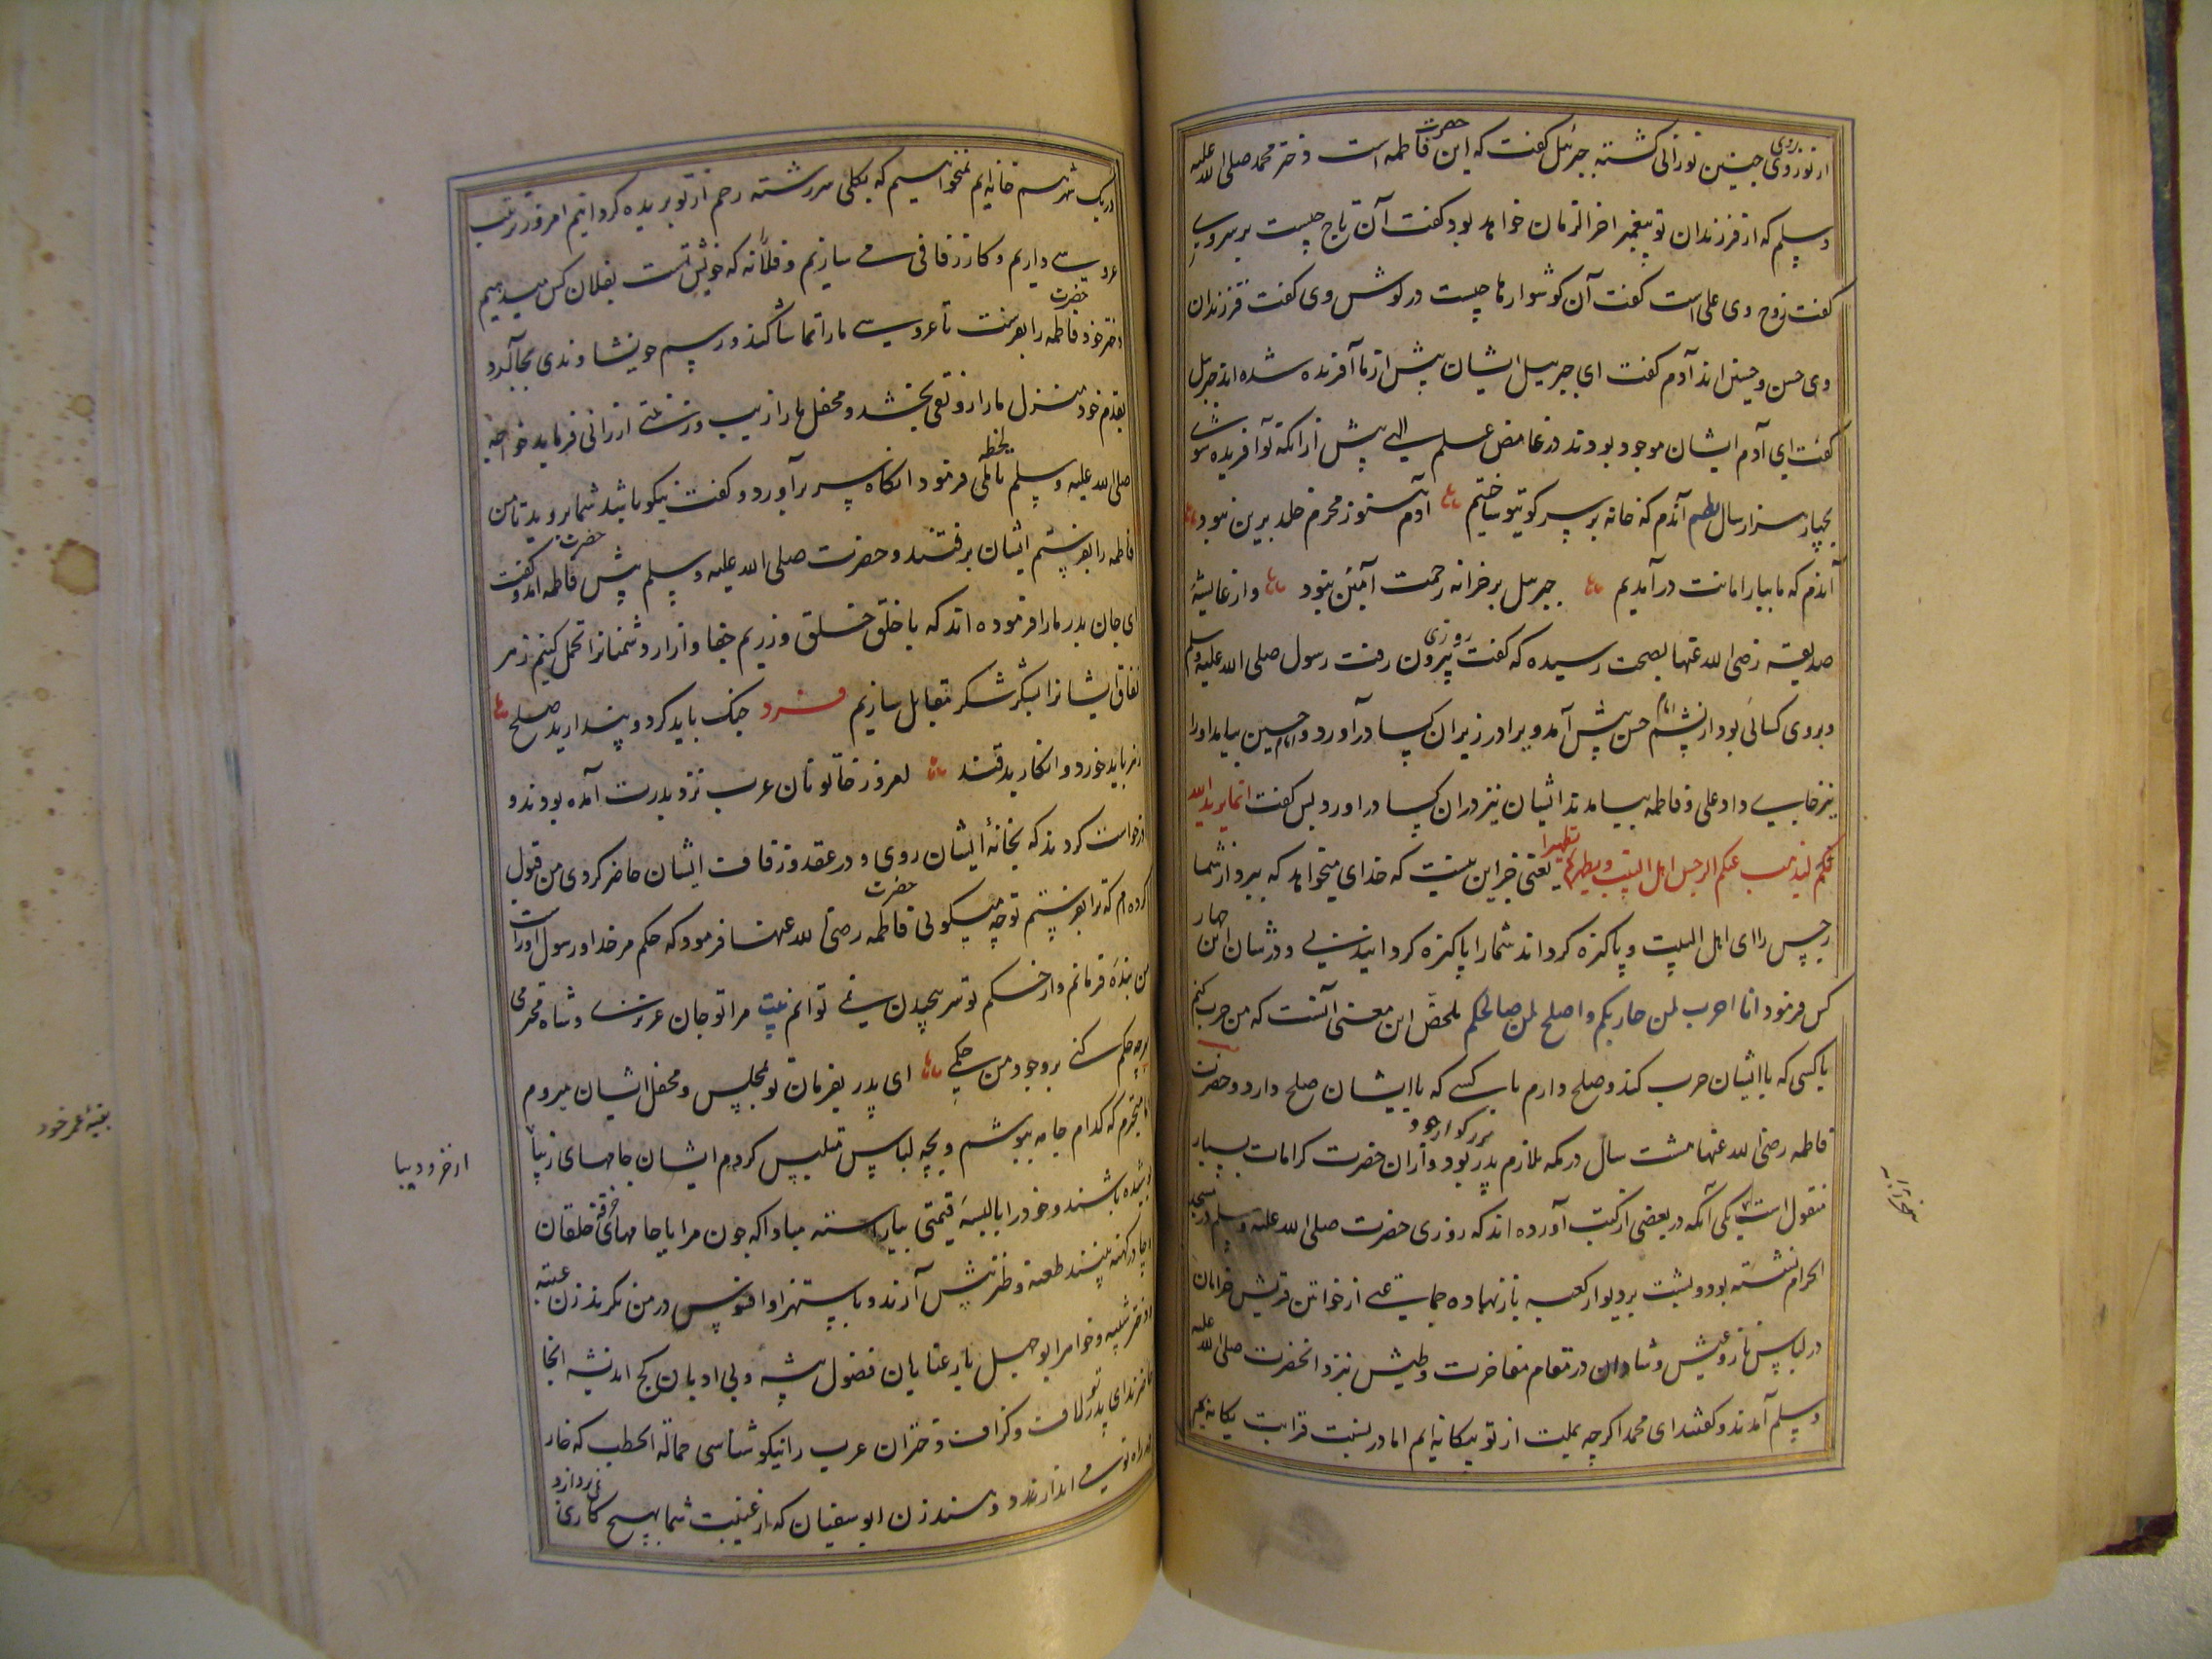 از نور روی چنین نورانی کشته جبرئیل کفت که این حضرت فاطمه است دختر محمد صلی الله علیه
وسلم که از فرزندان تو پیغمبر اخر الزمان خواهد بود کفت آن تاج چیست بر سر وی
کفت زوج وی علی است کفت آن کوشوارها چیست در کوش وی کفت فرزندان
وی حسن و حسین اند آدم کفت ای جبرییل ایشان پیش از ما آفریده شده اند جبریل
کفت ای آدم ایشان موجود بودند در غامض علم الهی پیش از انکه تو آفریده شوی
بچهار هزار سال نظم آندم که خانه بر سر کوی تو ساختیم آدم هنوز محرم خلد برین نبود
آندم که ما ببار امانت درآمدیم جبریل بر خزانه رحمت آمین نبود و از عایشه
صدیقه رضی الله عنها بصحت رسیده که کفت روزی بیرون رفت رسول صلی الله علیه وسلم
و بروی کسائی بود از پشم امام حسن پیش آمد ویرا در زیر ان کسا درآورد و امام حسین بیامد اورا
نیز جای داد علی و فاطمه بیامدند ایشان نیز در ان کسا دراورد پس کفت انما یرید الله
لیذهب عنکم الرجس اهل البیت ویطهرکم تطهیرا یعنی جز این نیست که خدای میخواهد که ببرد از شما
رجس را ای اهل البیت و پاکیزه کرداند شمارا پاکیزه کردانیدنی و در شان این چهار
کس فرمود انا احرب لمن حاربکم واصلح لمن صالحکم ملخص این معنی آنست که من حرب کنم
با کسی که با ایشان حرب کند و صلح دارم با کسی که با ایشان صلح دارد و حضرت
فاطمه رضی الله عنها هشت سال در مکه ملازم پدر بزرکوار خود بود و از ان حضرت کرامات بسیار
منقول است یکی آنکه در بعضی از کتب آورده اند که روزی حضرت صلی الله علیه وسلم در مسجد
الحرام نشسته بود و پشت بر دیوار کعبه باز نهاده جماعتی از خواتین قریش خرامان
در لباس ناز و عیش و شادان در مقام مفاخرت و طیش نزد انحضرت صلی الله علیه
وسلم آمدند و کفتند ای محمد اکرچه بملت از تو بیکانه ایم اما در نسبت قرابت یکانه ایم
در یک شهر هم خانه ایم نمیخواهیم که بکلی سررشته رحم از تو بریده کردانیم امروز ترتیب
عروسی داریم و کار زفافی می سازیم و فلانه که خویش تست بفلان کس میدهیم
دختر خود حضرت فاطمه را بفرست تا عروسی مارا تماشا کند و رسم خویشاوندی بجا آرد
بقدم خود منزل مارا رونقی بخشد و محفل مارا زیب و زینتی ارزانی فرماید خواجه
صلی الله علیه وسلم لحظه تاملی فرمود انکاه سر برآورد و کفت نیکو باشد شما بروید تا من
فاطمه را بفرستم ایشان برفتند و حضرت صلی الله علیه وسلم پیش حضرت فاطمه امد و کفت
ای جان پدر مارا فرموده اند که با خلق خلق ورزیم جفا و ازار دشمنانرا تحمل کنیم زهر
نفاق ایشانرا بشکر شکر مقابل سازیم فرد جنک باید کرد و پندارید صلح
زهر باید خورد و انکارید قند امروز خاتونان عرب نزد پدرت آمده بودند و
درخواست کردند که بخانهٔ ایشان روی و در عقد و زفاف ایشان حاضر کردی من قبول
کرده ام که ترا بفرستم تو چه میکوئی حضرت فاطمه رضی الله عنها فرمود که حکم مر خدا و رسول اوراست
من بندهٔ فرمانم و از حکم تو سر پیچیدن نمی توانم بیت مرا تو جان عزیزی و شاه محترمی
هرچه حکم کنی بر وجود من حکمی ای پدر بفرمان تو بمجلس و محفل ایشان میروم
اما متحیرم که کدام جامه بپوشم و بچه لباس تلبیس کردم ایشان جامهای زیبا
پوشیده باشند و خودرا بالبسهٔ قیمتی بیاراسته مبادا که چون مرا با جامهای خرقه خلقان
و چادر کهنه بینند طعنه و طنز پیش آرند و باستهزا و افسوس در من نکرند زن عتبه
و دختر شیبه و خواهر ابوجهل با رعنایان فضول پیشه و بی ادبان کج اندیشه انجا
حاضرند ای پدر تو لاف و کزاف دختران عرب را نیکو شناسی حمالة الحطب که خار
در راه تو می اندازند و هند زن ابو سفیان که از غیبت شما بهیچ کاری نمی پردازد
از خز و دیبا
بقیهٔ عمر خود